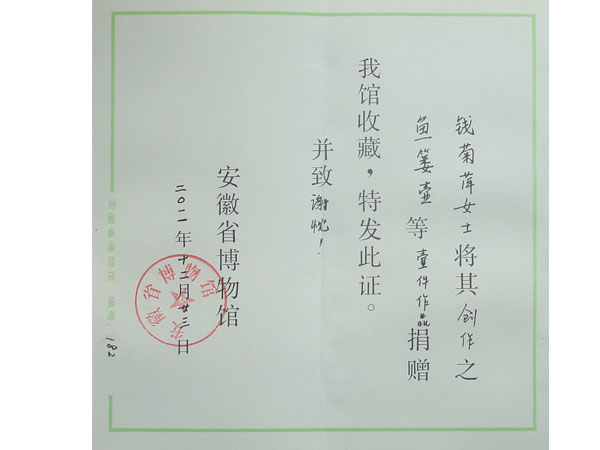 钱菊萍女士将其创作之
鱼篓壶等壹件作品捐赠
我馆收藏，特发此证。
并致谢忱！
安徽省博物馆
二〇一一年十二月廿三日
安徽省博物馆
182